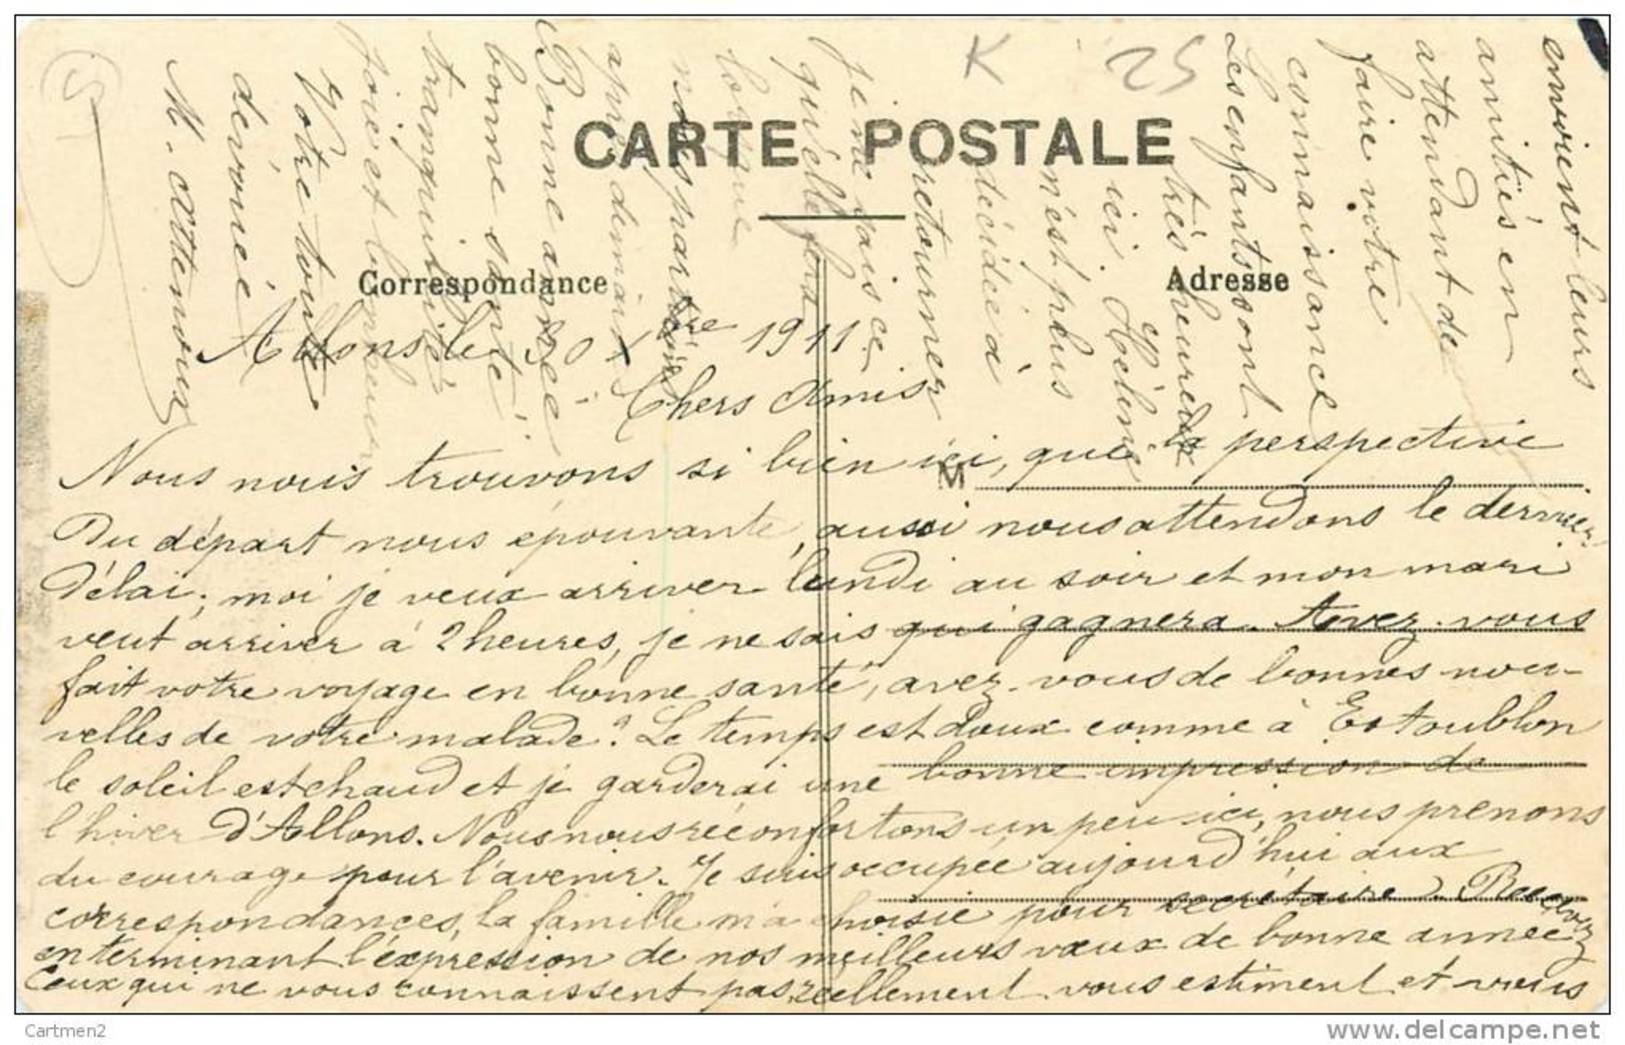 K 25
CARTE POSTALE
Correspondance
Adresse
M
Allons le 30 Xbre 1911
Chers Amis
Nous nous trouvons si bien ici, que la perspective
Du départ nous épouvante, aussi nous attendons le dernier
Délai; moi je veux arriver lundi au soir et mon mari
veut arriver à 2 heures, je ne sais qui gagnera. Avez-vous
fait votre voyage en bonne santé, avez-vous de bonnes nou-
velles de votre malade? Le temps est doux comme à Estoublon
le soleil est chaud et je garderai une bonne impression de
l'hiver d'Allons. Nous nous réconfortons un peu ici, nous prenons
du courage pour l'avenir. Je suis occupée aujourd'hui aux
correspondances, la famille m'a choisie pour secrétaire. Recevez
en terminant l'expression de nos meilleurs vœux de bonne année
Ceux qui ne vous connaissent pas réellement vous estiment et vous
envoient leurs
amitiés en
attendant de
faire votre
connaissance
Les enfants sont
très heureux
ici et Hélène
n'est plus
décidée à
retourner
je ne sais ce
qu'elle fera
lorsque
nous partirons
après demain
Bonne année
bonne santé
tranquillité
joie et bonheur
Votre toute
dévouée
M. Attenoux
Cartmen2
www.delcampe.net